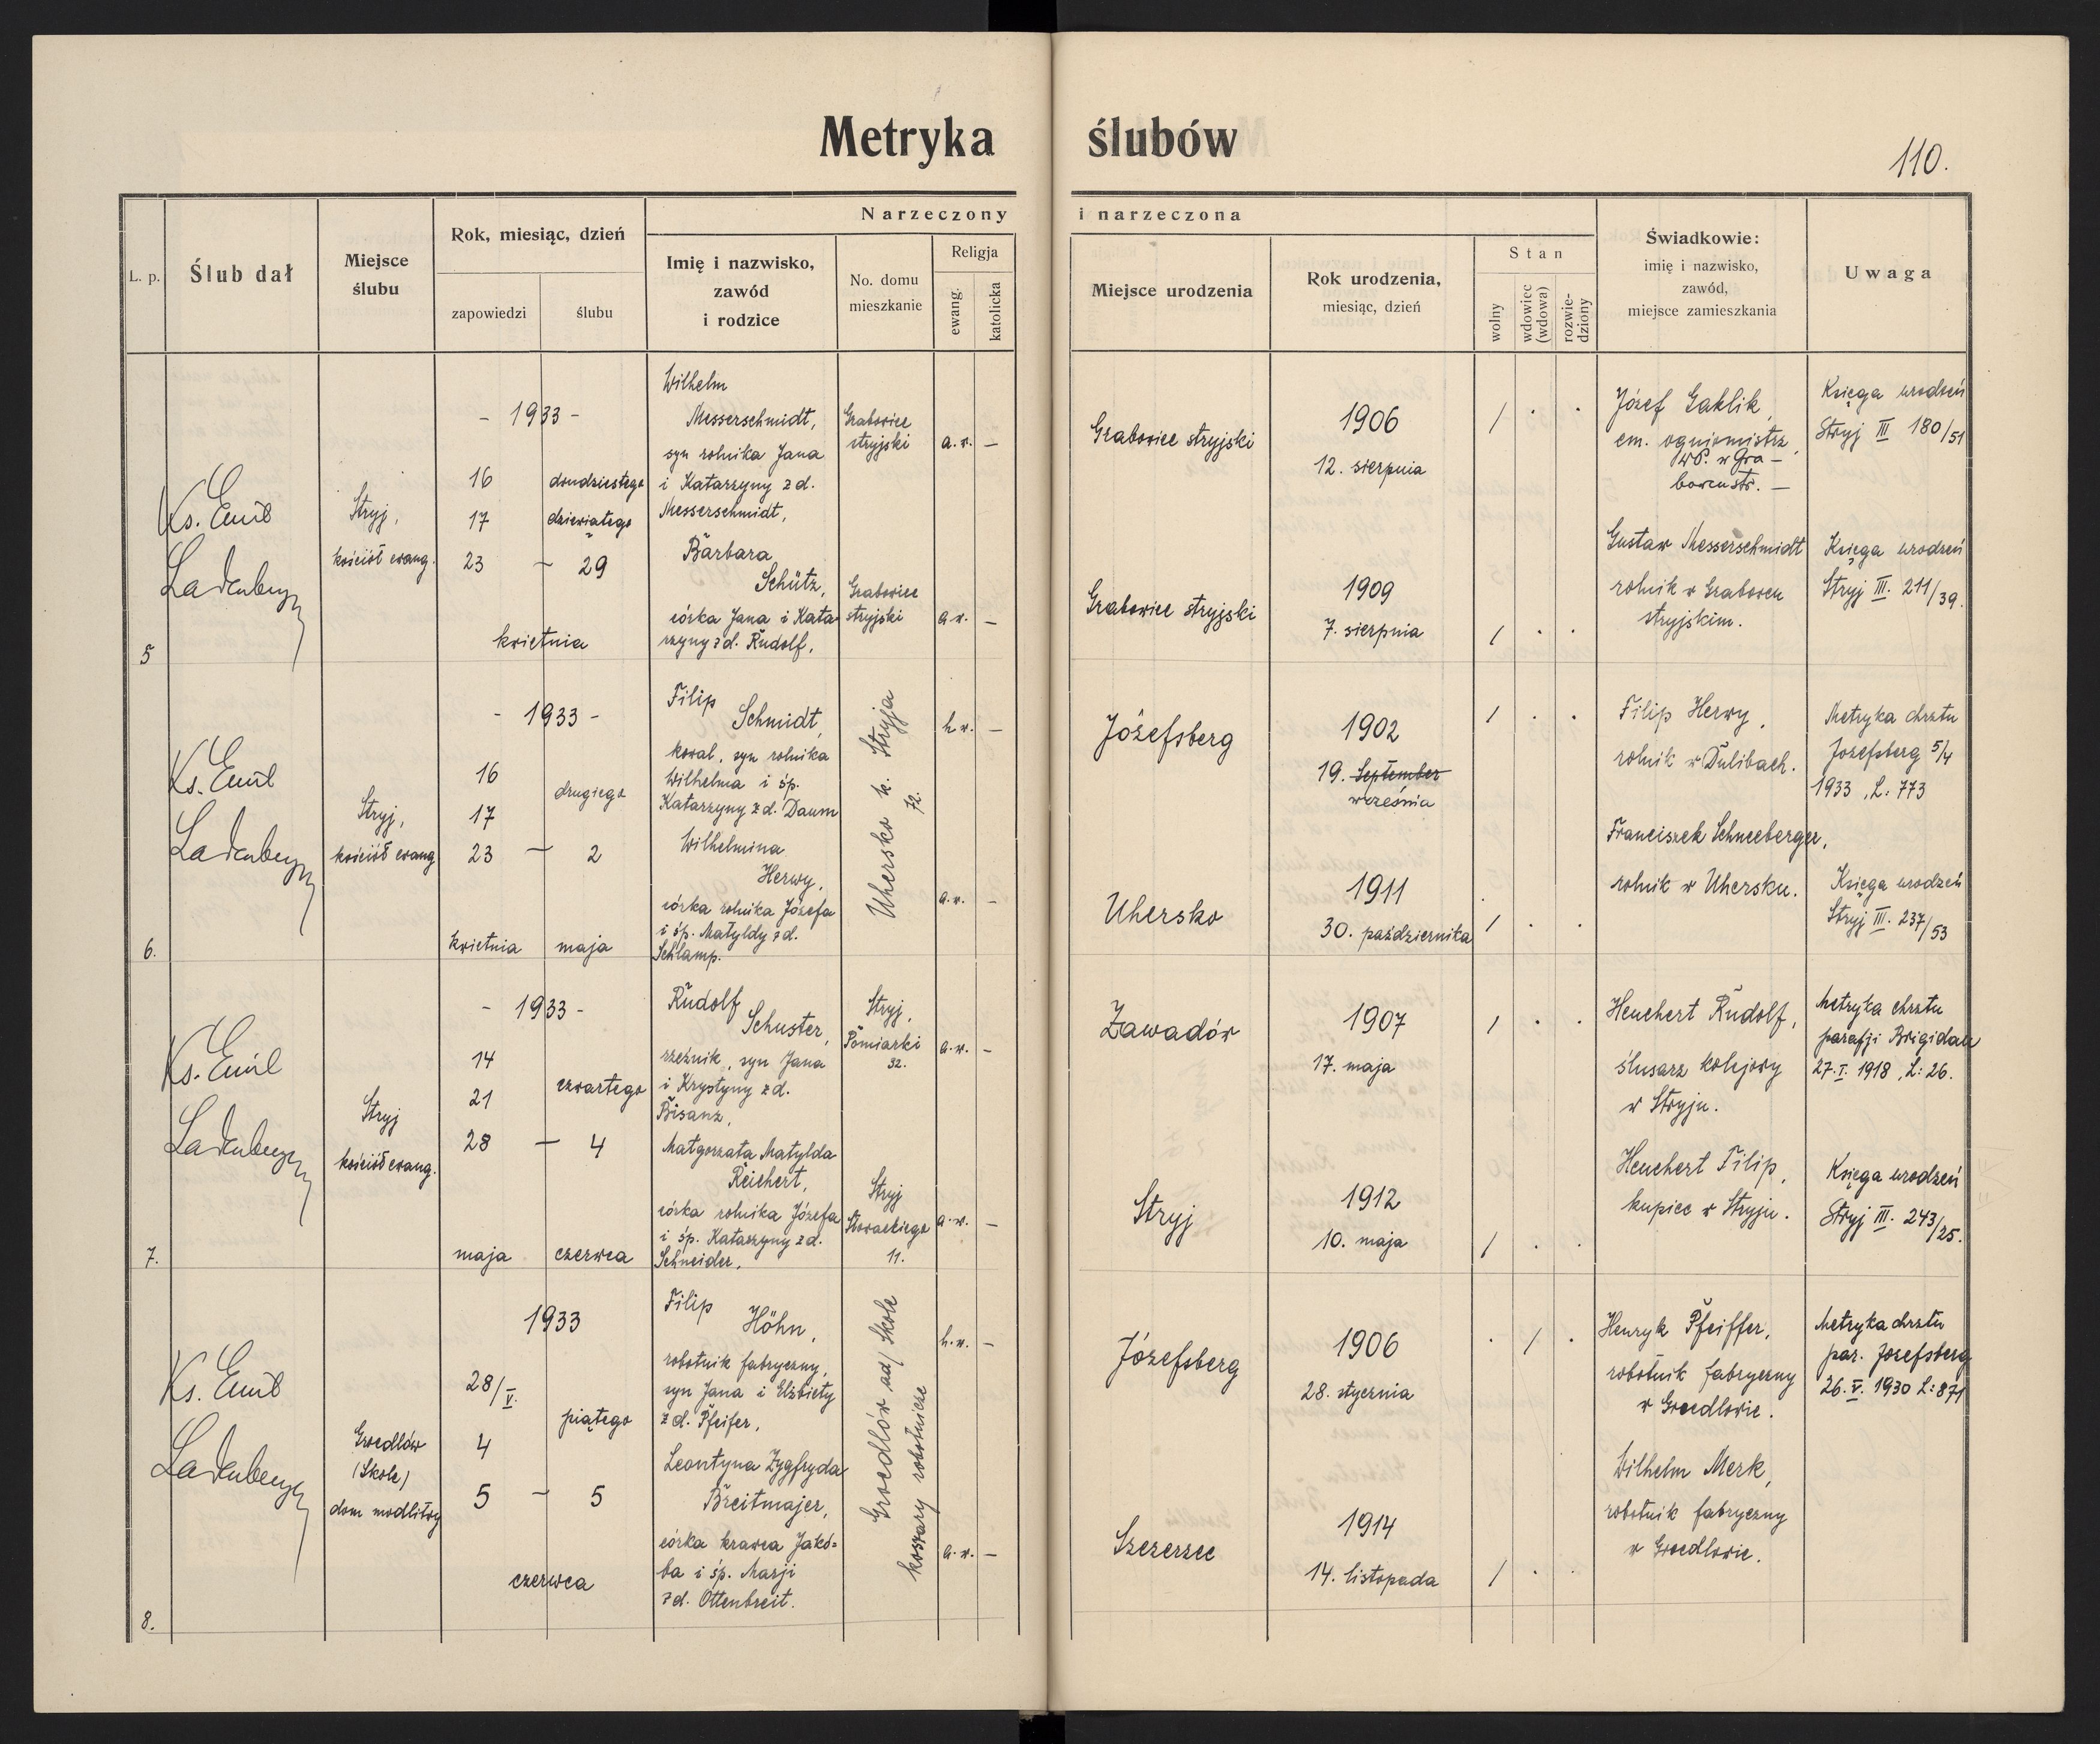 Metryka ślubów
110.
L. p.
Ślub dał
Miejsce
ślubu
Rok, miesiąc, dzień
zapowiedzi
ślubu
Narzeczony i narzeczona
Imię i nazwisko,
zawód
i rodzice
No. domu
mieszkanie
Religja
ewang.
katolicka
Miejsce urodzenia
Rok urodzenia,
miesiąc, dzień
Stan
wolny
wdowiec
(wdowa)
rozwie-
dziony
Świadkowie:
imię i nazwisko,
zawód,
miejsce zamieszkania
Uwaga
5
Ks. Emil
Ladenberger
Stryj,
kościół ewang.
- 1933 -
16
17
23
dwudziestego
dziewiątego
— 29
kwietnia
Wilhelm
Messerschmidt,
syn rolnika Jana
i Katarzyny z d.
Messerschmidt,
Grabowice
stryjski
a. w. —
Grabowice stryjski
1906
12. sierpnia
/ . .
Józef Gaklik,
em. ogniomistrz
W.P. w Gra-
bowcu str. —
Księga urodzeń
Stryj III 180/51
Barbara
Schütz,
córka Jana i Kata
rzyny z d. Rudolf,
Grabowice
stryjski
a. w. —
Grabowice stryjski
1909
7. sierpnia
/ . .
Gustaw Messerschmidt
rolnik w Grabowcu
stryjskim.
Księga urodzeń
Stryj III. 211/39.
6.
Ks. Emil
Ladenberger
Stryj,
kościół ewang
- 1933 -
16
17
23
drugiego
— 2
kwietnia
maja
Filip
Schmidt,
kowal, syn rolnika
Wilhelma i śp.
Katarzyny z d. Daum
Uhersko k. Stryja
72.
h. w. —
Józefsberg
1902
19. September
września
/ . .
Filip Herwy,
rolnik w Dulibach.
Metryka chrztu
Josefsberg 5/4
1933, L: 773
Wilhelmina
Herwy,
córka rolnika Józefa
i śp. Matyldy z d.
Schlamp.
a. w. —
Uhersko
1911
30. października
/ . .
Franciszek Schneeberger,
rolnik w Uhersku.
Księga urodzeń
Stryj III. 237/53
7.
Ks. Emil
Ladenberger
Stryj
kościół ewang.
- 1933 -
14
21
28
czwartego
— 4
maja
czerwca
Rudolf
Schuster,
rzeźnik, syn Jana
i Krystyny z d.
Bisanz,
Stryj,
Pomiarki
32.
a. w. —
Zawadów
1907
17. maja
/ . .
Heuchert Rudolf,
ślusarz kolejowy
w Stryju.
Metryka chrztu
parafji Brigidau
27. I. 1918, L: 26.
Małgorzata Matylda
Reichert,
córka rolnika Józefa
i śp. Katarzyny z d.
Schneider.
Stryj
Słowackiego
11.
a. w. —
Stryj
1912
10. maja
/ . .
Heuchert Filip,
kupiec w Stryju.
Księga urodzeń
Stryj III. 243/25.
8.
Ks. Emil
Ladenberger
Groedlów
(Skole)
dom modlitwy
1933
28/V.
4
5
piątego
— 5
czerwca
Filip
Höhn,
robotnik fabryczny,
syn Jana i Elżbiety
z d. Pfeifer,
Groedlów ad/ Skole
koszary robotnicze
h. w. —
Józefsberg
1906
28. stycznia
. / .
Henryk Pfeiffer,
robotnik fabryczny
w Groedlowie.
Metryka chrztu
par. Josefsberg
26. V. 1930 L: 871
Leontyna Zygfryda
Breitmajer,
córka krawca Jakó=
ba i śp. Marji
z d. Ottenbreit.
a. w. —
Szczerzec
1914
14. listopada
/ . .
Wilhelm Merk,
robotnik fabryczny
w Groedlowie.